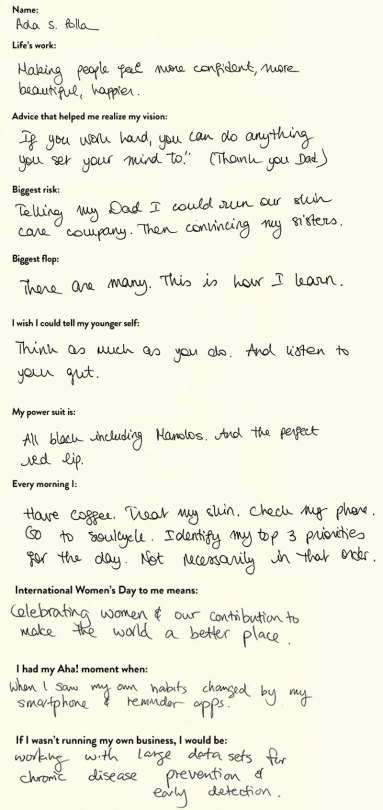 Name:
Ada S. Polla
Life's work:
Making people feel more confident, more
beautiful, happier.
Advice that helped me realize my vision:
If you work hard, you can do anything
you set your mind to." (Thank you Dad)
Biggest risk:
Telling my Dad I could run our skin
care company. Then convincing my sisters.
Biggest flop:
There are many. This is how I learn.
I wish I could tell my younger self:
Think as much as you do. And listen to
your gut.
My power suit is:
All black including Manolos. And the perfect
red lip.
Every morning I:
Have coffee. Treat my skin. Check my phone.
Go to Soulcycle. Identify my top 3 priorities
for the day. Not necessarily in that order.
International Women's Day to me means:
Celebrating women & our contribution to
make the world a better place.
I had my Aha! moment when:
When I saw my own habits changed by my
smartphone & reminder apps.
If I wasn't running my own business, I would be:
working with large data sets for
chronic disease prevention &
early detection.